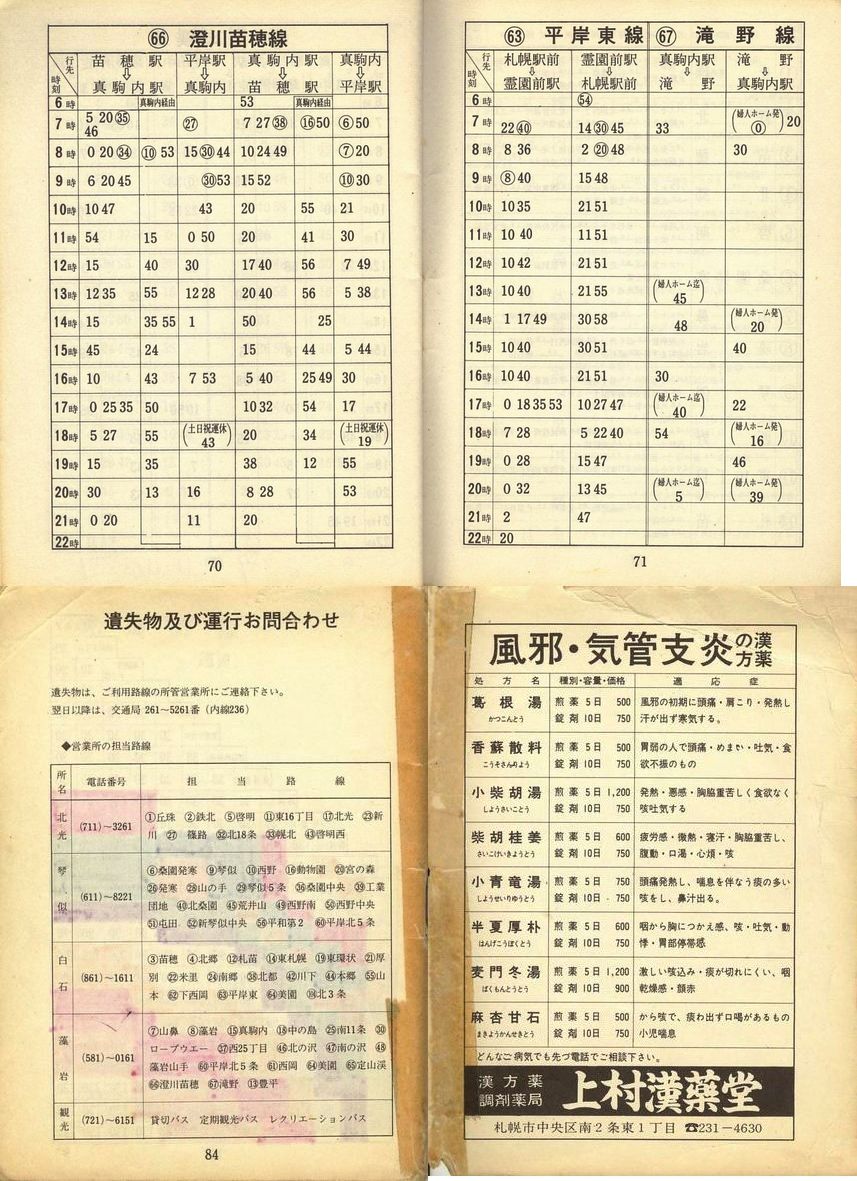 ㊿+16 澄川苗穂線
行先
時刻
苗穂駅 平岸駅 真駒内駅 真駒内
⇩ ⇩ ⇩ ⇩
真駒内駅 真駒内 苗穂駅 平岸駅
6時 真駒内経由 53 真駒内経由
7時 5 20 ㉟ 46 ㉗ 7 27 ㊳ ⑯ 50 ⑥ 50
8時 0 20 ㉞ ⑩ 53 15 ㉚ 44 10 24 49 ⑦ 20
9時 6 20 45 ㉚ 53 15 52 ⑩ 30
10時 10 47 43 20 55 21
11時 54 15 0 50 20 41 30
12時 15 40 30 17 40 56 7 49
13時 12 35 55 12 28 20 40 56 5 38
14時 15 35 55 1 50 25
15時 45 24 15 44 5 44
16時 10 43 7 53 5 40 25 49 30
17時 0 25 35 50 10 32 54 17
18時 5 27 55 (土日祝運休 43) 20 34 (土日祝運休 19)
19時 15 35 38 12 55
20時 30 13 16 8 28 53
21時 0 20 11 20
22時
70
(63) 平岸東線 (67) 滝野線
行先
時刻
札幌駅前 霊園前駅 真駒内駅 滝野
⇩ ⇩ ⇩ ⇩
霊園前駅 札幌駅前 滝野 真駒内駅
6時 (54)
7時 22 ㊵ 14 ㉚ 45 33 (婦人ホーム発 ⓪) 20
8時 8 36 2 ⑳ 48 30
9時 ⑧ 40 15 48
10時 10 35 21 51
11時 10 40 11 51
12時 10 42 21 51
13時 10 40 21 55 (婦人ホーム迄 45)
14時 1 17 49 30 58 48 (婦人ホーム発 20)
15時 10 40 30 51 40
16時 10 40 21 51 30
17時 0 18 35 53 10 27 47 (婦人ホーム迄 40) 22
18時 7 28 5 22 40 54 (婦人ホーム発 16)
19時 0 28 15 47 46
20時 0 32 13 45 (婦人ホーム迄 5) (婦人ホーム発 39)
21時 2 47
22時 20
71
遺失物及び運行お問合わせ
遺失物は、ご利用路線の所管営業所にご連絡下さい。
翌日以降は、交通局 261〜5261番（内線236）
◆営業所の担当路線
所名 電話番号 担当路線
北光 (711)〜3261
①丘珠 ②鉄北 ⑤啓明 ⑪東16丁目 ⑰北光 ㉓新
川 ㉗篠路 ㉜北18条 ㉝幌北 ㊸啓明西
琴似 (611)〜8221
⑥桑園発寒 ⑨琴似 ⑩西野 ⑯動物園 ⑳宮の森
㉖発寒 ㉘山の手 ㉙琴似5条 ㊱桑園中央 ㊴工業
団地 ㊵北桑園 ㊺荒井山 ㊾西野南 ㊿西野中央
(51)屯田 (52)新琴似中央 (56)平和第2 (60)平岸北5条
白石 (861)〜1611
③苗穂 ④北郷 ⑫札苗 ⑭東札幌 ⑲東環状 ㉑厚
別 ㉒米里 ㉔南郷 ㊳北都 ㊷川下 ㊹本郷 (55)山
本 (62)下西岡 (63)平岸東 (64)美園 北3条
藻岩 (581)〜0161
⑦山鼻 ⑧藻岩 ⑮真駒内 ⑱中の島 ㉕南11条 ㉚
ロープウエー ㊲西25丁目 ㊻北の沢 ㊼南の沢 ㊽
藻岩山手 (60)平岸北5条 (61)西岡 (64)美園 (65)定山渓
(66)澄川苗穂 (67)滝野 ⑬豊平
観光 (721)〜6151 貸切バス 定期観光バス レクリエーションバス
84
風邪・気管支炎の漢方薬
処方名 種別・容量・価格 適応症
葛根湯 煎薬5日 500 風邪の初期に頭痛・肩こり・発熱し
かつこんとう 錠剤10日 750 汗が出ず寒気する。
香蘇散料 煎薬5日 500 胃弱の人で頭痛・めまい・吐気・食
こうそさんりよう 錠剤10日 750 欲不振のもの
小柴胡湯 煎薬5日 1,200 発熱・悪感・胸脇重苦しく食欲なく
しようさいことう 錠剤10日 750 咳吐気する
柴胡桂姜 煎薬5日 600 疲労感・微熱・寝汗・胸脇重苦し、
さいこけいきようとう 錠剤10日 750 腹動・口渇・心煩・咳
小青竜湯 煎薬5日 750 頭痛発熱し、喘息を伴なう痰の多い
しようせいりゆうとう 錠剤10日 750 咳をし、鼻汁出る。
半夏厚朴 煎薬5日 600 咽から胸につかえ感、咳・吐気・動
はんげこうぼくとう 錠剤10日 750 悸・胃部停滞感
麦門冬湯 煎薬5日 1,200 激しい咳込み・痰が切れにくい、咽
ばくもんとうとう 錠剤10日 900 乾燥感・顔赤
麻杏甘石 煎薬5日 500 から咳で、痰わ出ず口喝があるもの
まきようかんせきとう 錠剤10日 750 小児喘息
どんなご病気でも先づ電話でご相談下さい。
漢方薬
調剤薬局 上村漢薬堂
札幌市中央区南2条東1丁目 ☎231－4630